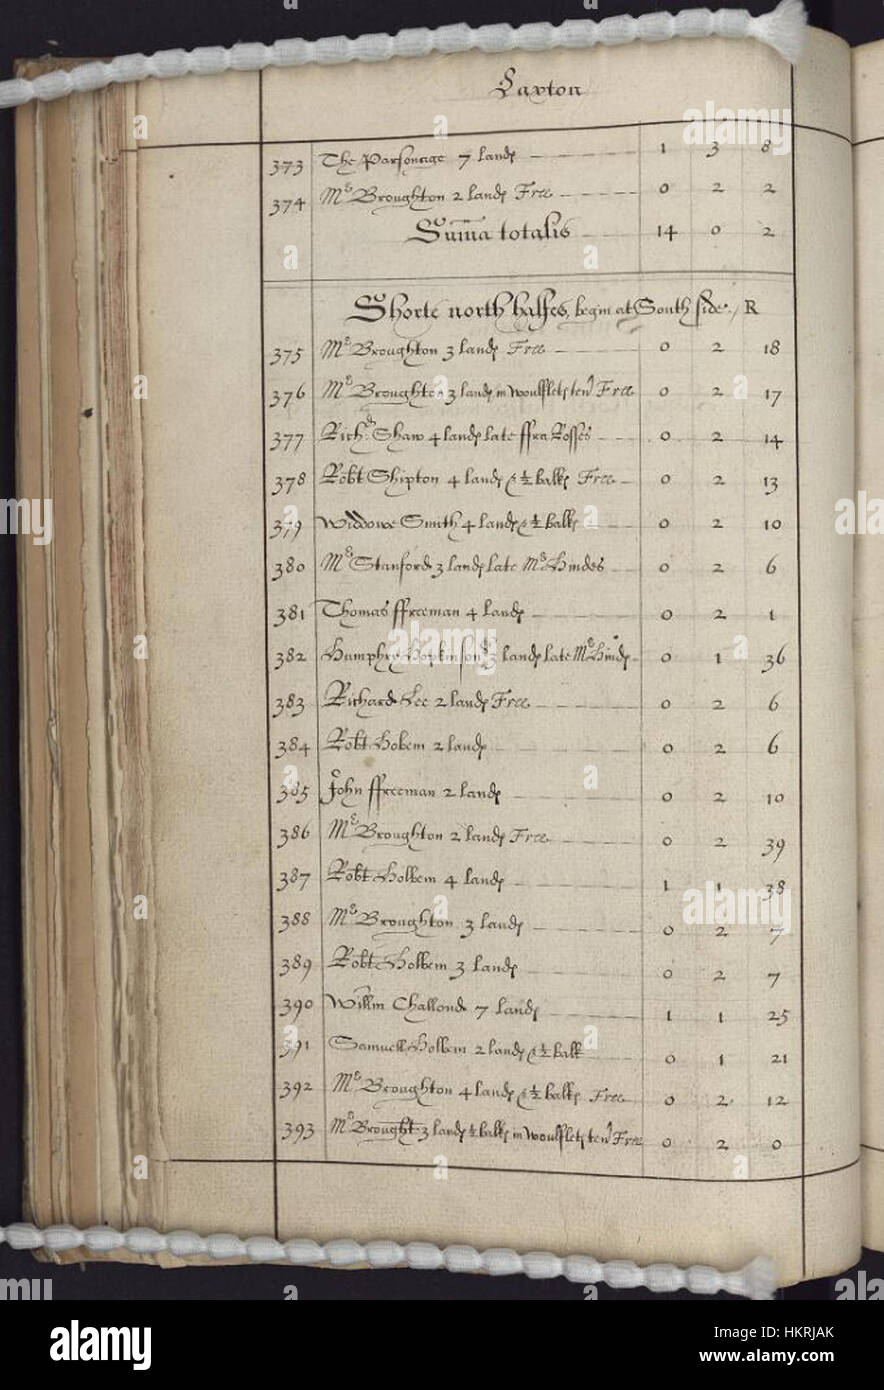 Laxton
373 The Parsonage 7 lands 1 3 8
374 Mr Broughton 2 lands Free 0 2 2
Suma totalis 14 0 2
Shorte north halfes, begin at South side. / R
375 Mr Broughton 3 lands Free 0 2 18
376 Mr Broughton 3 lands in woulflets ten Free 0 2 17
377 Richd Shaw 4 lands late ffra Rosses 0 2 14
378 Robt Shipton 4 lands & ½ balks Free 0 2 13
379 Widdowe Smith 4 lands & ½ balks 0 2 10
380 Mr Stanford 3 lands late Mr Hindes 0 2 6
381 Thomas ffreeman 4 lands 0 2 1
382 Humphry Hopkinson 3 lands late Mr Hinds 0 1 36
383 Richard Lee 2 lands Free 0 2 6
384 Robt Holbem 2 lands 0 2 6
385 John ffreeman 2 lands 0 2 10
386 Mr Broughton 2 lands Free 0 2 39
387 Robt Holbem 4 lands 1 1 38
388 Mr Broughton 3 lands 0 2 7
389 Robt Holbem 3 lands 0 2 7
390 Willm Challond 7 lands 1 1 25
391 Samuell Holbem 2 lands & ½ balk 0 1 21
392 Mr Broughton 4 lands & ½ balks Free 0 2 12
393 Mr Brought 3 lands ½ balks in woulflets ten Free 0 2 0
alamy
Image ID: HKRJAK
www.alamy.com